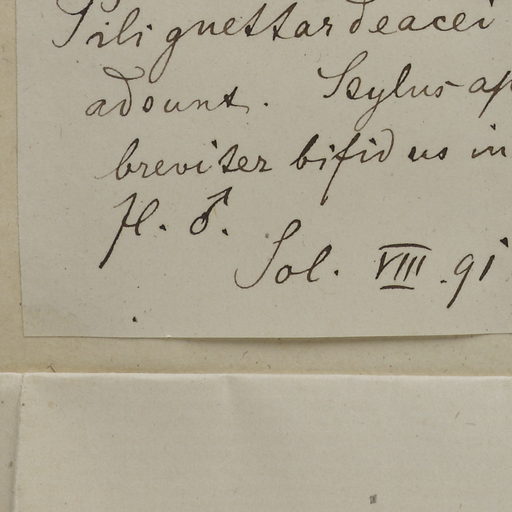 Pili guettardeacei
adsunt. Stylus ap
breviter bifidus in
fl. ♂.
Sol. VIII. 91